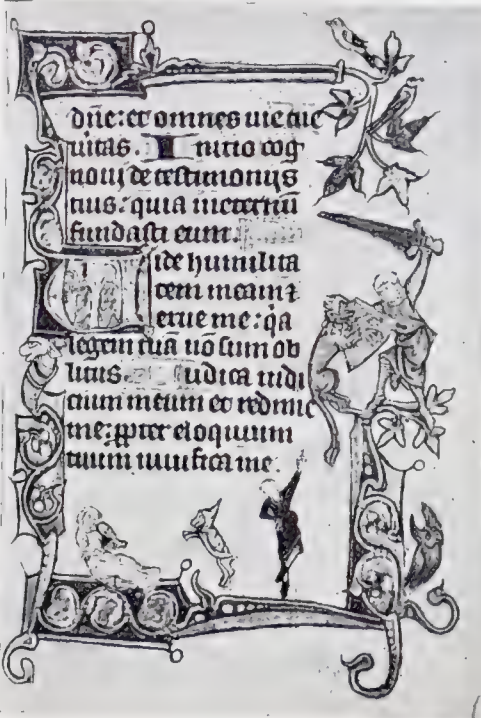 dñe: et omnes uie tue
uitas. Initio cog
noui de testimonijs
tuis: quia ineternũ
fundasti eum.
Uide humilita
tem meam ⁊
erue me: q̃a
legem tuã nõ sum ob
litus. Iudica iudi
cium meum et redime
me: ꝓpter eloquium
tuum uiuifica me.